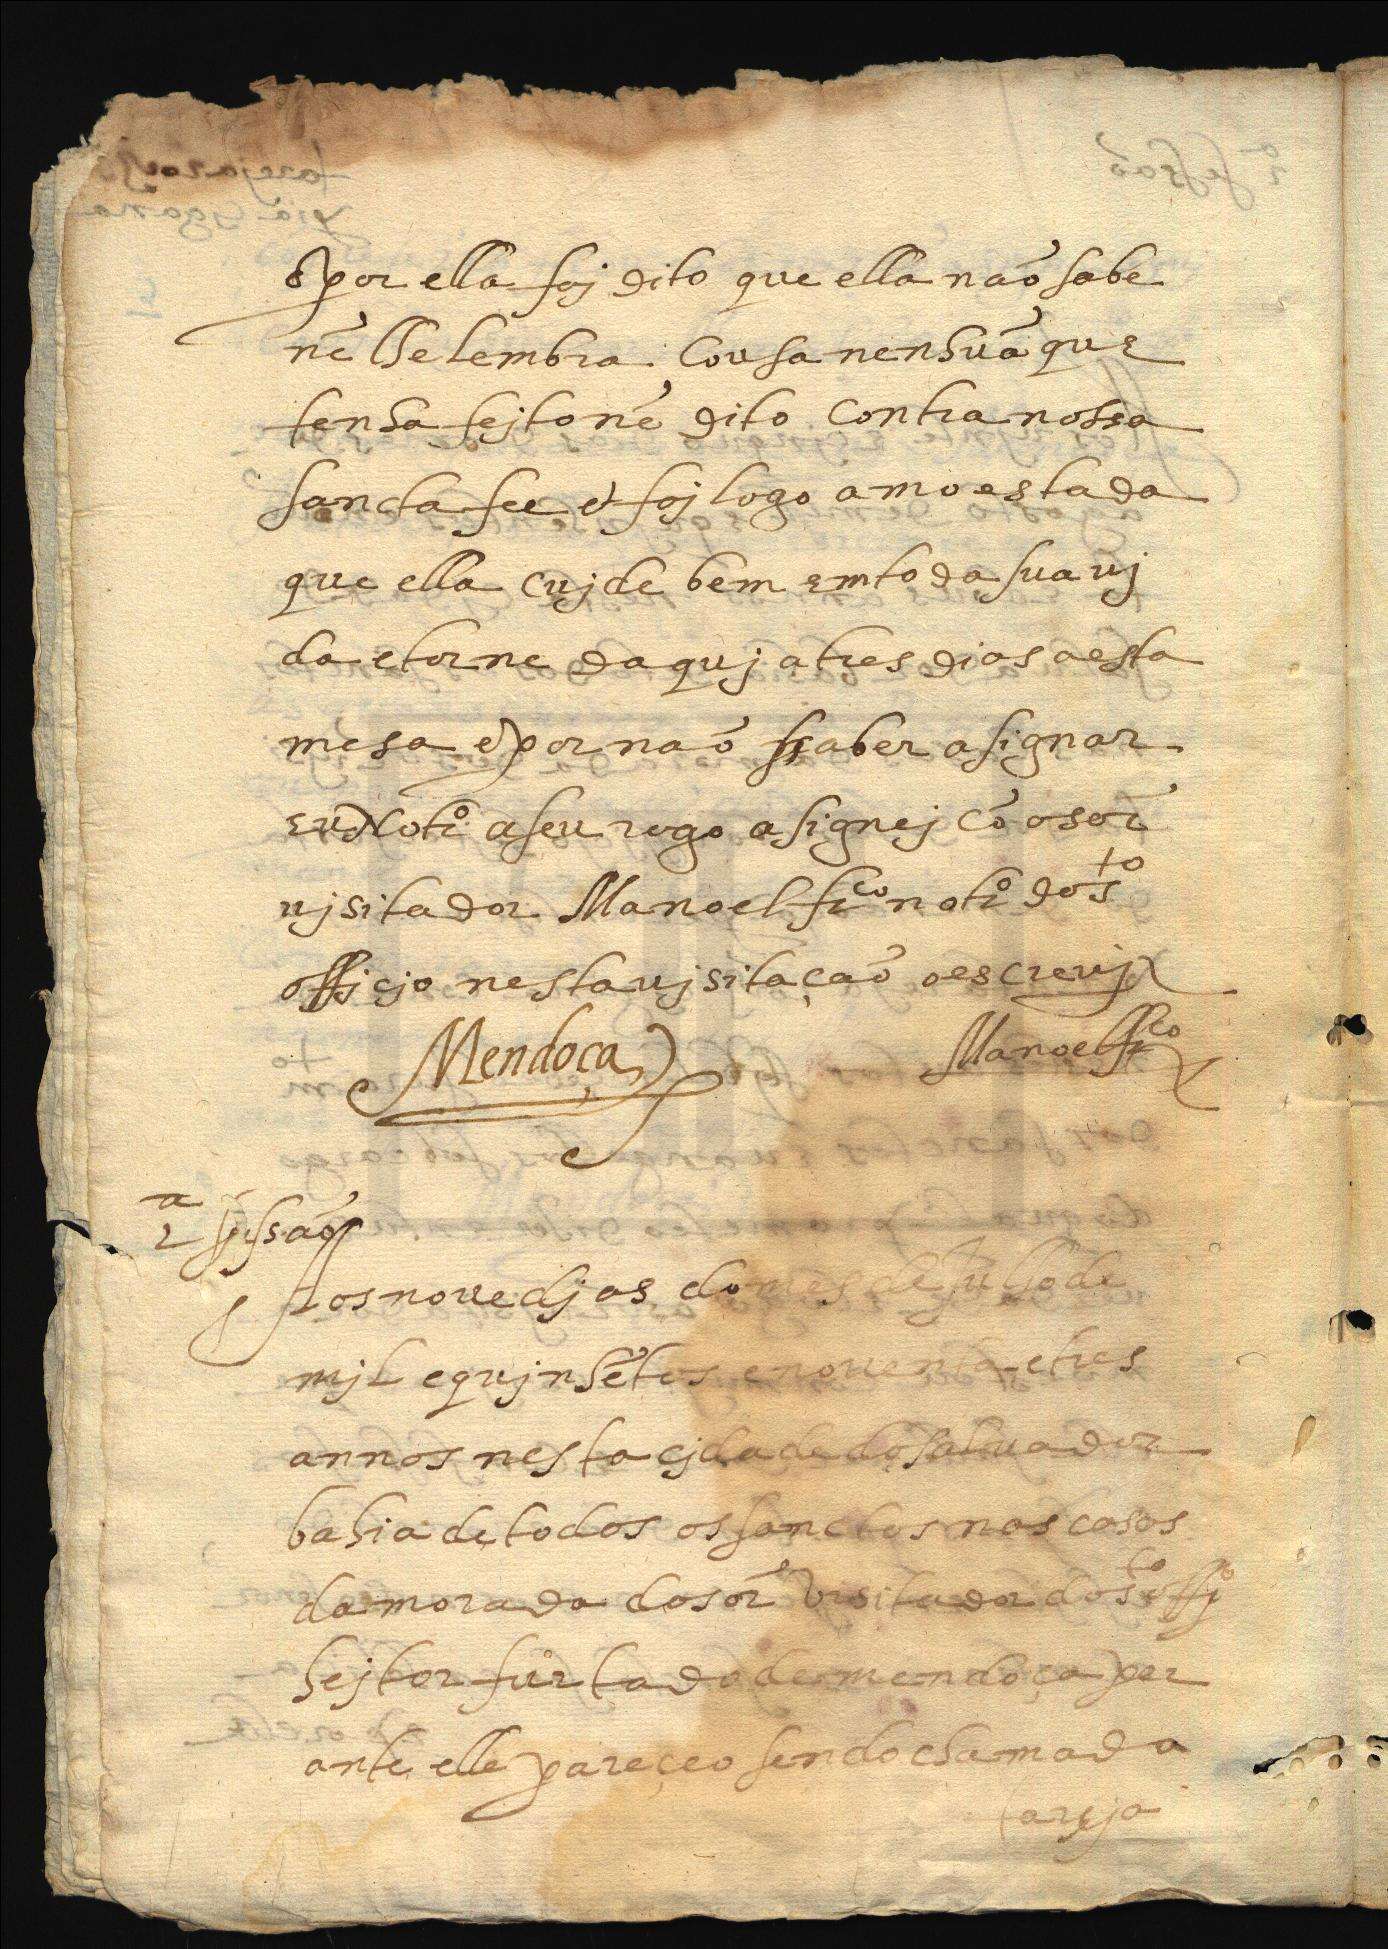 E por ella foj dito que ella não sabe
nẽ lhe lembra cousa nenhũa que
tenha fejto nẽ dito contra nossa
sancta fee e foj logo amoestada
que ella cujde bem em toda sua uj
da e torne daquj a tres dias a esta
mesa e por não saber asignar
eu notro a seu rogo asignej cõ o sor
ujsitador Manoel frco notro do sto
offiçio nesta ujsitação o escreuj
Mendoça
Manoel frco
2a sessão
Aos noue djas do mes de Julho de
mjl e qujnhẽtos e nouenta e tres
annos nesta çidade do saluador
bahia de todos os sanctos nas casas
da morada do sor visitador do sto offo
hejtor furtado de mendoça per
ante elle pareçeo sendo chamada
tareja